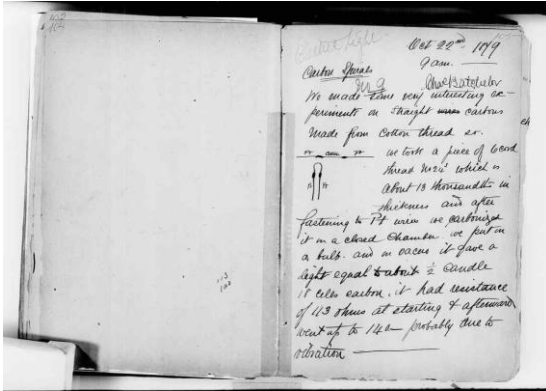 Electric Light
Oct 22nd 1879
9 am.
Carbon Spirals
No 9 Chas Batchelor
We made some very interesting ex-
periments on straight carbons
made from Cotton thread so.
we took a piece of 6 cord
thread No 24 which is
about 13 thousandths in
thickness and after
fastening to Pt wires we carbonized
it in a closed chamber. we put in
a bulb. and in vacuo it gave a
light equal to about ½ candle
18 cells carbon. it had resistance
of 113 ohms at starting & afterward
went up to 140 — probably due to
vibration
113
140